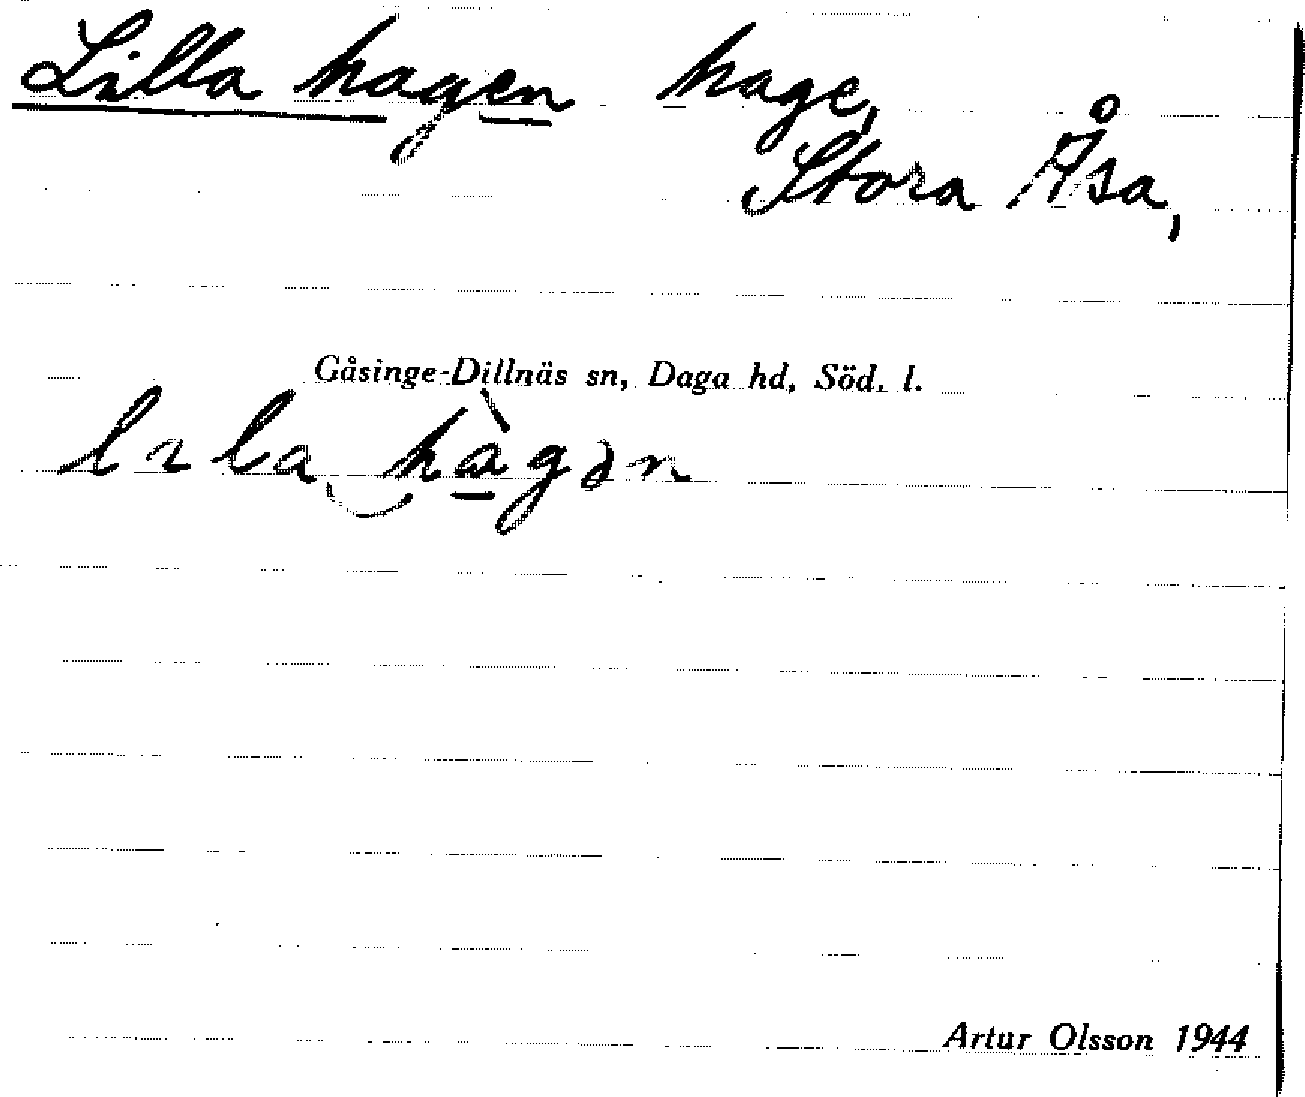 Lilla hagen hage,
Stora Åsa,
Gåsinge-Dillnäs sn, Daga hd, Söd. l.
lɩla‿hàgən
Artur Olsson 1944